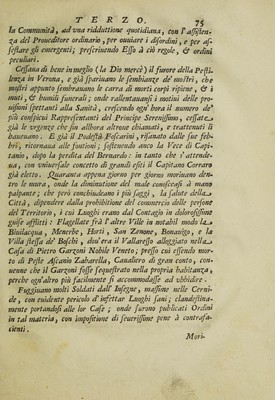 TERZO. 75
la Communità, ad una ridduttione quotidiana, con l'assisten-
za del Proueditore ordinario, per ouuiare i disordini, e per as-
sestare gli emergenti; prescriuendo Esso à ciò regole, & ordini
peculiari.
Cessaua di bene in meglio (la Dio mercè) il furore della Pesti-
lenza in Verona, e già spariuano le sembianze de' mostri, che
mostri appunto sembrauano le carra di morti corpi ripiene, & i
muti, & humili funerali; onde rallentauansi i motiui delle pro-
uisioni spettanti alla Sanità, crescendo ogni hora il numero de'
più cospicui Rappresentanti del Principe Serenissimo, cessate
già le urgenze che sin allhora altroue chiamati, e trattenuti li
haueuano. E già il Podestà Foscarini, risanato dalla sua feb-
bre, ritornaua alle funtioni, sostenendo anco la Vece di Capi-
tanio, dopo la perdita del Bernardo: in tanto che s'attende-
ua, con uniuersale concetto di grandi essiti il Capitano Corraro
già eletto. Quaranta appena giorno per giorno moriuano den-
tro le mura, onde la diminutione del male conosceuasi à mano
palpante; che però conchiudeano i più saggi, la salute della
Città, dipendere dalla prohibitione del commercio delle persone
del Territorio, i cui Luoghi erano dal Contagio in dolorosissime
guise afflitti: Flagellate frà l'altre Ville in notabil modo la
Biuilaqua, Menerbe, Horti, San Zenone, Bonauigo, e la
Villa stessa de' Boschi, ou'era il Vallaresso alloggiato nella
Casa di Pietro Garzoni Nobile Veneto; presso cui essendo mor-
to di Peste Ascanio Zabarella, Caualiero di gran conto, con-
uenne che il Garzoni fosse sequestrato nella propria habitanza,
perche ogn'altro più facilmente si accommodasse ad ubbidire.
Fuggiuano molti Soldati dall'Insegne, massime nelle Cerni-
de, con euidente pericolo d'infettar Luoghi sani; clandestina-
mente portandosi alle lor Case; onde furono publicati Ordini
in tal materia, con impositione di seuerissime pene à contrafa-
cienti.
Mori-